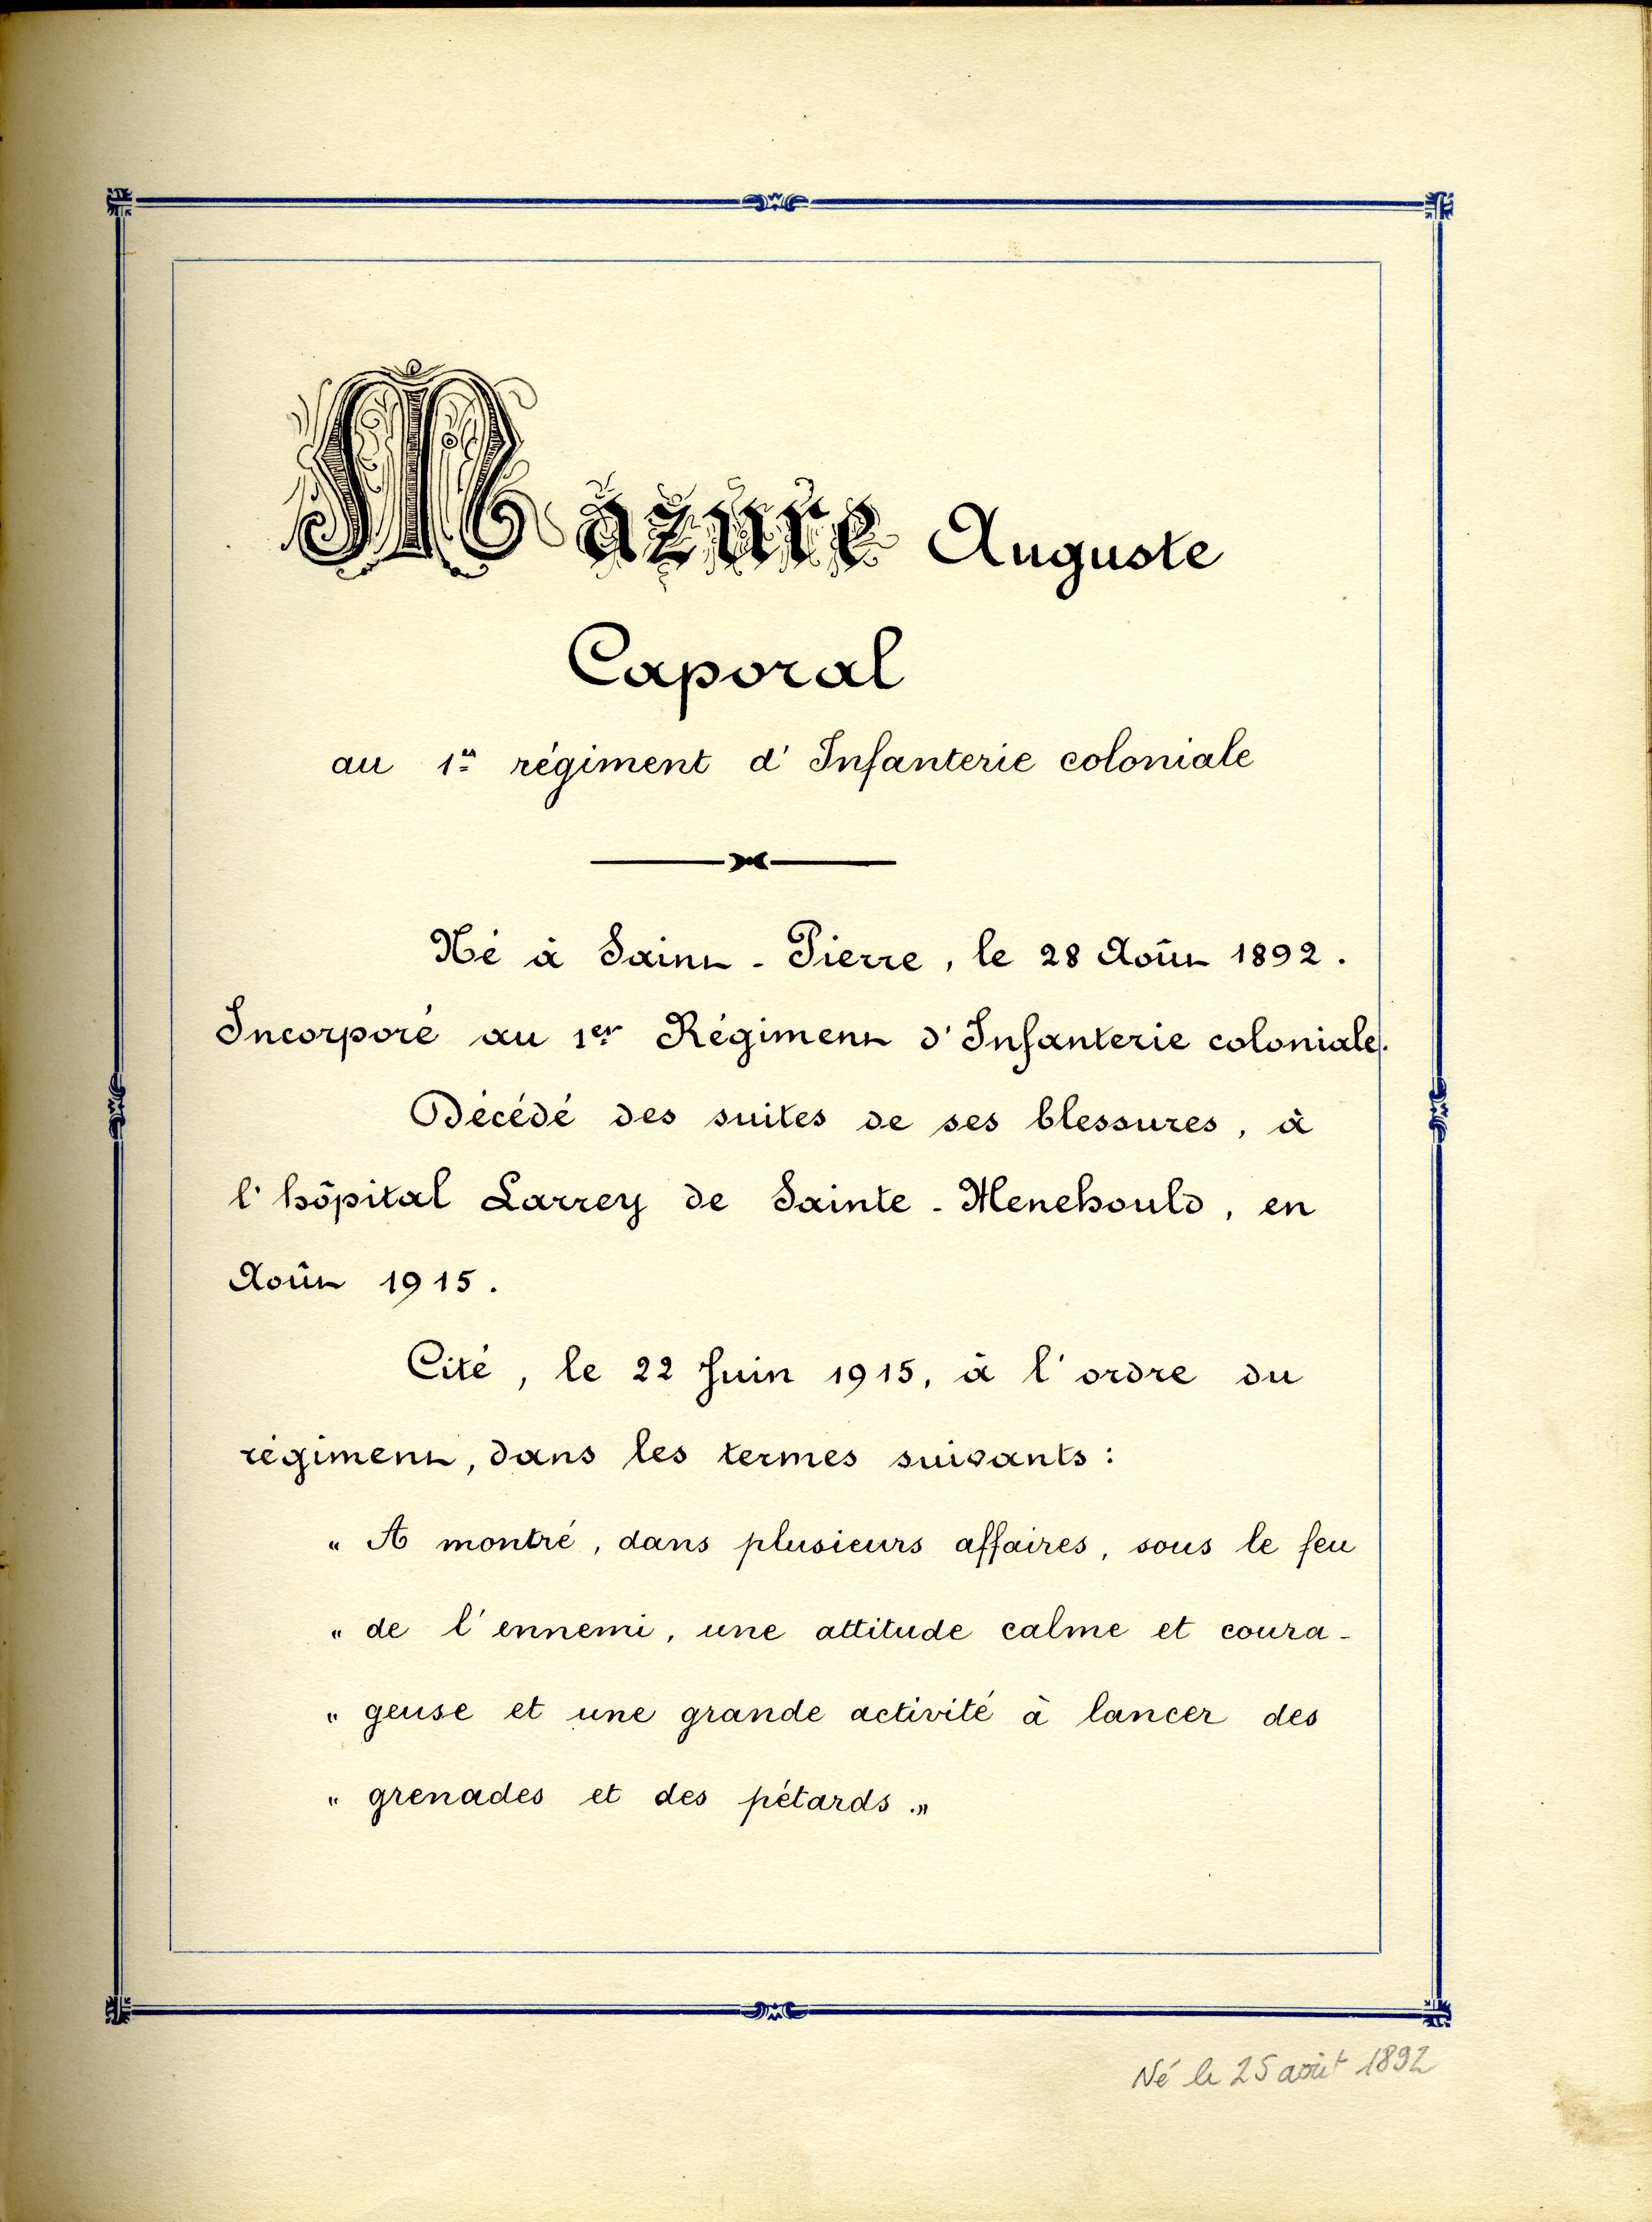 Mazure Auguste
Caporal
au 1er régiment d'Infanterie coloniale
Né à Saint-Pierre, le 28 Août 1892.
Incorporé au 1er Régiment d'Infanterie coloniale.
Décédé des suites de ses blessures, à
l'hôpital Larrey de Sainte-Menehould, en
Août 1915.
Cité, le 22 Juin 1915, à l'ordre du
régiment, dans les termes suivants :
" A montré, dans plusieurs affaires, sous le feu
" de l'ennemi, une attitude calme et coura-
" geuse et une grande activité à lancer des
" grenades et des pétards."
Né le 25 août 1892